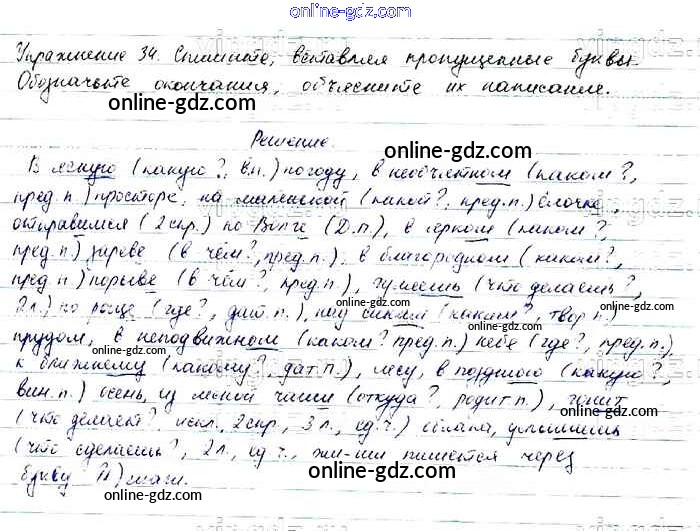 online-gdz.com
Упражнение 34. Спишите, вставляя пропущенные буквы.
Обозначьте окончания, объясните их написание.
online-gdz.com
Решение.
online-gdz.com
В ясную (какую?, в.п.) погоду, в необъятном (каком?,
пред.п.) просторе, на маленькой (какой?, пред.п.) ёлочке,
online-gdz.com
отправимся (2 спр.) по Волге (Д.п.), в ярком (каком?,
пред.п.) зареве (в чём?, пред.п.), в благородном (каком?,
online-gdz.com
пред.п.) порыве (в чём?, пред.п.), гуляешь (что делаешь?,
online-gdz.com
2 л.) по роще (где?, дат.п.), над синим (каким?, твор.п.)
online-gdz.com
прудом, в неподвижном (каком? пред.п.) небе (где?, пред.п.),
online-gdz.com
к ближнему (какому?, дат.п.), лесу, в позднюю (какую?,
вин.п.) осень, из лесной чащи (откуда?, родит.п.), гонит
online-gdz.com
(что делает?, искл., 2 спр., 3 л., ед.ч.) облака, услышишь
online-gdz.com
(что сделаешь?, 2 л., ед.ч., жи-ши пишется через
online-gdz.com
букву И) шаги.
online-gdz.com
online-gdz.com